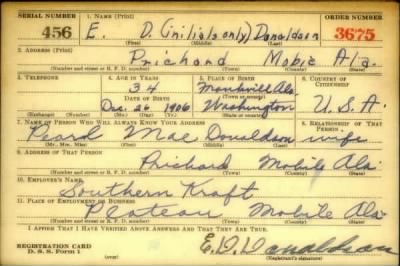 SERIAL NUMBER 1. NAME (Print) ORDER NUMBER
456 E. D. (initials only) Donaldson 3675
(First) (Middle) (Last)
2. ADDRESS (Print)
Prichard Mobile Ala.
(Number and street or R. F. D. number) (Town) (County) (State)
3. TELEPHONE 4. AGE IN YEARS 5. PLACE OF BIRTH 6. COUNTRY OF CITIZENSHIP
34 Ala.
DATE OF BIRTH (Town or county)
Dec. 26 1906 Washington U.S.A.
(Mo.) (Day) (Yr.) (State or country)
7. NAME OF PERSON WHO WILL ALWAYS KNOW YOUR ADDRESS 8. RELATIONSHIP OF THAT PERSON
Pearl Mae Donaldson wife
(Mr., Mrs., Miss) (First) (Middle) (Last)
9. ADDRESS OF THAT PERSON
Prichard Mobile Ala.
(Number and street or R. F. D. number) (Town) (County) (State)
10. EMPLOYER'S NAME
Southern Kraft
11. PLACE OF EMPLOYMENT OR BUSINESS
Plateau Mobile Ala.
(Number and street or R. F. D. number) (Town) (County) (State)
I AFFIRM THAT I HAVE VERIFIED ABOVE ANSWERS AND THAT THEY ARE TRUE.
REGISTRATION CARD E. D. Donaldson
D. S. S. Form 1 (over) (Registrant's signature)